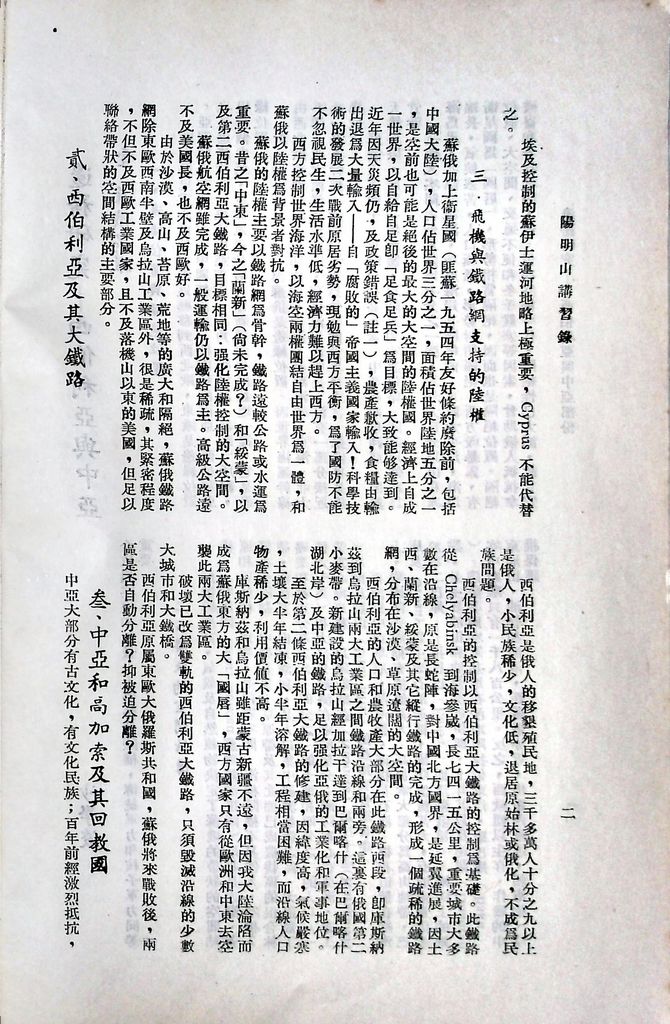 陽明山講習錄
二
埃及控制的蘇伊士運河地略上極重要，Cyprus 不能代替
之。
三．飛機與鐵路網支持的陸權
蘇俄加上衞星國（匪蘇一九五四年友好條約廢除前，包括
中國大陸），人口佔世界三分之一，面積佔世界陸地五分之一
，是空前也可能是絕後的最大的大空間的陸權國。經濟上自成
一世界，以自給自足卽「足食足兵」爲目標，大致能够達到。
近年因天災頻仍，及政策錯誤（註一），農產歉收，食糧由輸
出退爲大量輸入——自「腐敗的」帝國主義國家輸入！科學技
術的發展二次戰前原居劣勢，現勉與西方平衡，爲了國防不能
不忽視民生，生活水準低，經濟力難以趕上西方。
西方控制世界海洋，以海空兩權團結自由世界爲一體，和
蘇俄以陸權爲背景者對抗。
蘇俄的陸權主要以鐵路網爲骨幹，鐵路遠較公路或水運爲
重要。昔之「中東」，今之「蘭新」（尙未完成？）和「綏蒙」，以
及第二西伯利亞大鐵路，目標相同：强化陸權控制的大空間。
蘇俄航空網雖完成，一般運輸仍以鐵路爲主。高級公路遠
不及美國長，也不及西歐好。
由於沙漠、高山、苔原、荒地等的廣大和隔絕，蘇俄鐵路
網除東歐西南半壁及烏拉山工業區外，很是稀疏，其緊密程度
，不但不及西歐工業國家，且不及落機山以東的美國，但足以
聯絡帶狀的空間結構的主要部分。
貳、西伯利亞及其大鐵路
西伯利亞是俄人的移墾殖民地，三千多萬人十分之九以上
是俄人，小民族稀少，文化低，退居原始林或俄化，不成爲民
族問題。
西伯利亞的控制以西伯利亞大鐵路的控制爲基礎。此鐵路
從 Chelyabinsk 到海參崴，長七四一五公里，重要城市大多
數在沿線，原是長蛇陣，對中國北方國界，是延翼進展，因土
西、蘭新、綏蒙及其它縱行鐵路的完成，形成一個疏稀的鐵路
網，分布在沙漠、草原遼闊的大空間。
西伯利亞的人口和農牧產大部分在此鐵路西段，卽庫斯納
茲到烏拉山兩大工業區之間鐵路沿線和兩旁。這裏有俄國第二
小麥帶。新建設的烏拉山經加拉干達到巴爾喀什（在巴爾喀什
湖北岸）及中亞的鐵路，足以强化亞俄的工業化和軍事地位。
至於第二條西伯利亞大鐵路的修建，因緯度高，氣候嚴寒
，土壤大半年結凍，小半年溶解，工程相當困難，而沿線人口
物產稀少，利用價値不高。
庫斯納茲和烏拉山雖距蒙古新疆不遠，但因我大陸淪陷而
成爲蘇俄東方的大「國唇」，西方國家只有從歐洲和中東去空
襲此兩大工業區。
破壞已改爲雙軌的西伯利亞大鐵路，只須毁滅沿線的少數
大城市和大鐵橋。
西伯利亞原屬東歐大俄羅斯共和國，蘇俄將來戰敗後，兩
區是否自動分離？抑被迫分離？
叁、中亞和高加索及其回敎國
中亞大部分有古文化，有文化民族；百年前經激烈抵抗，